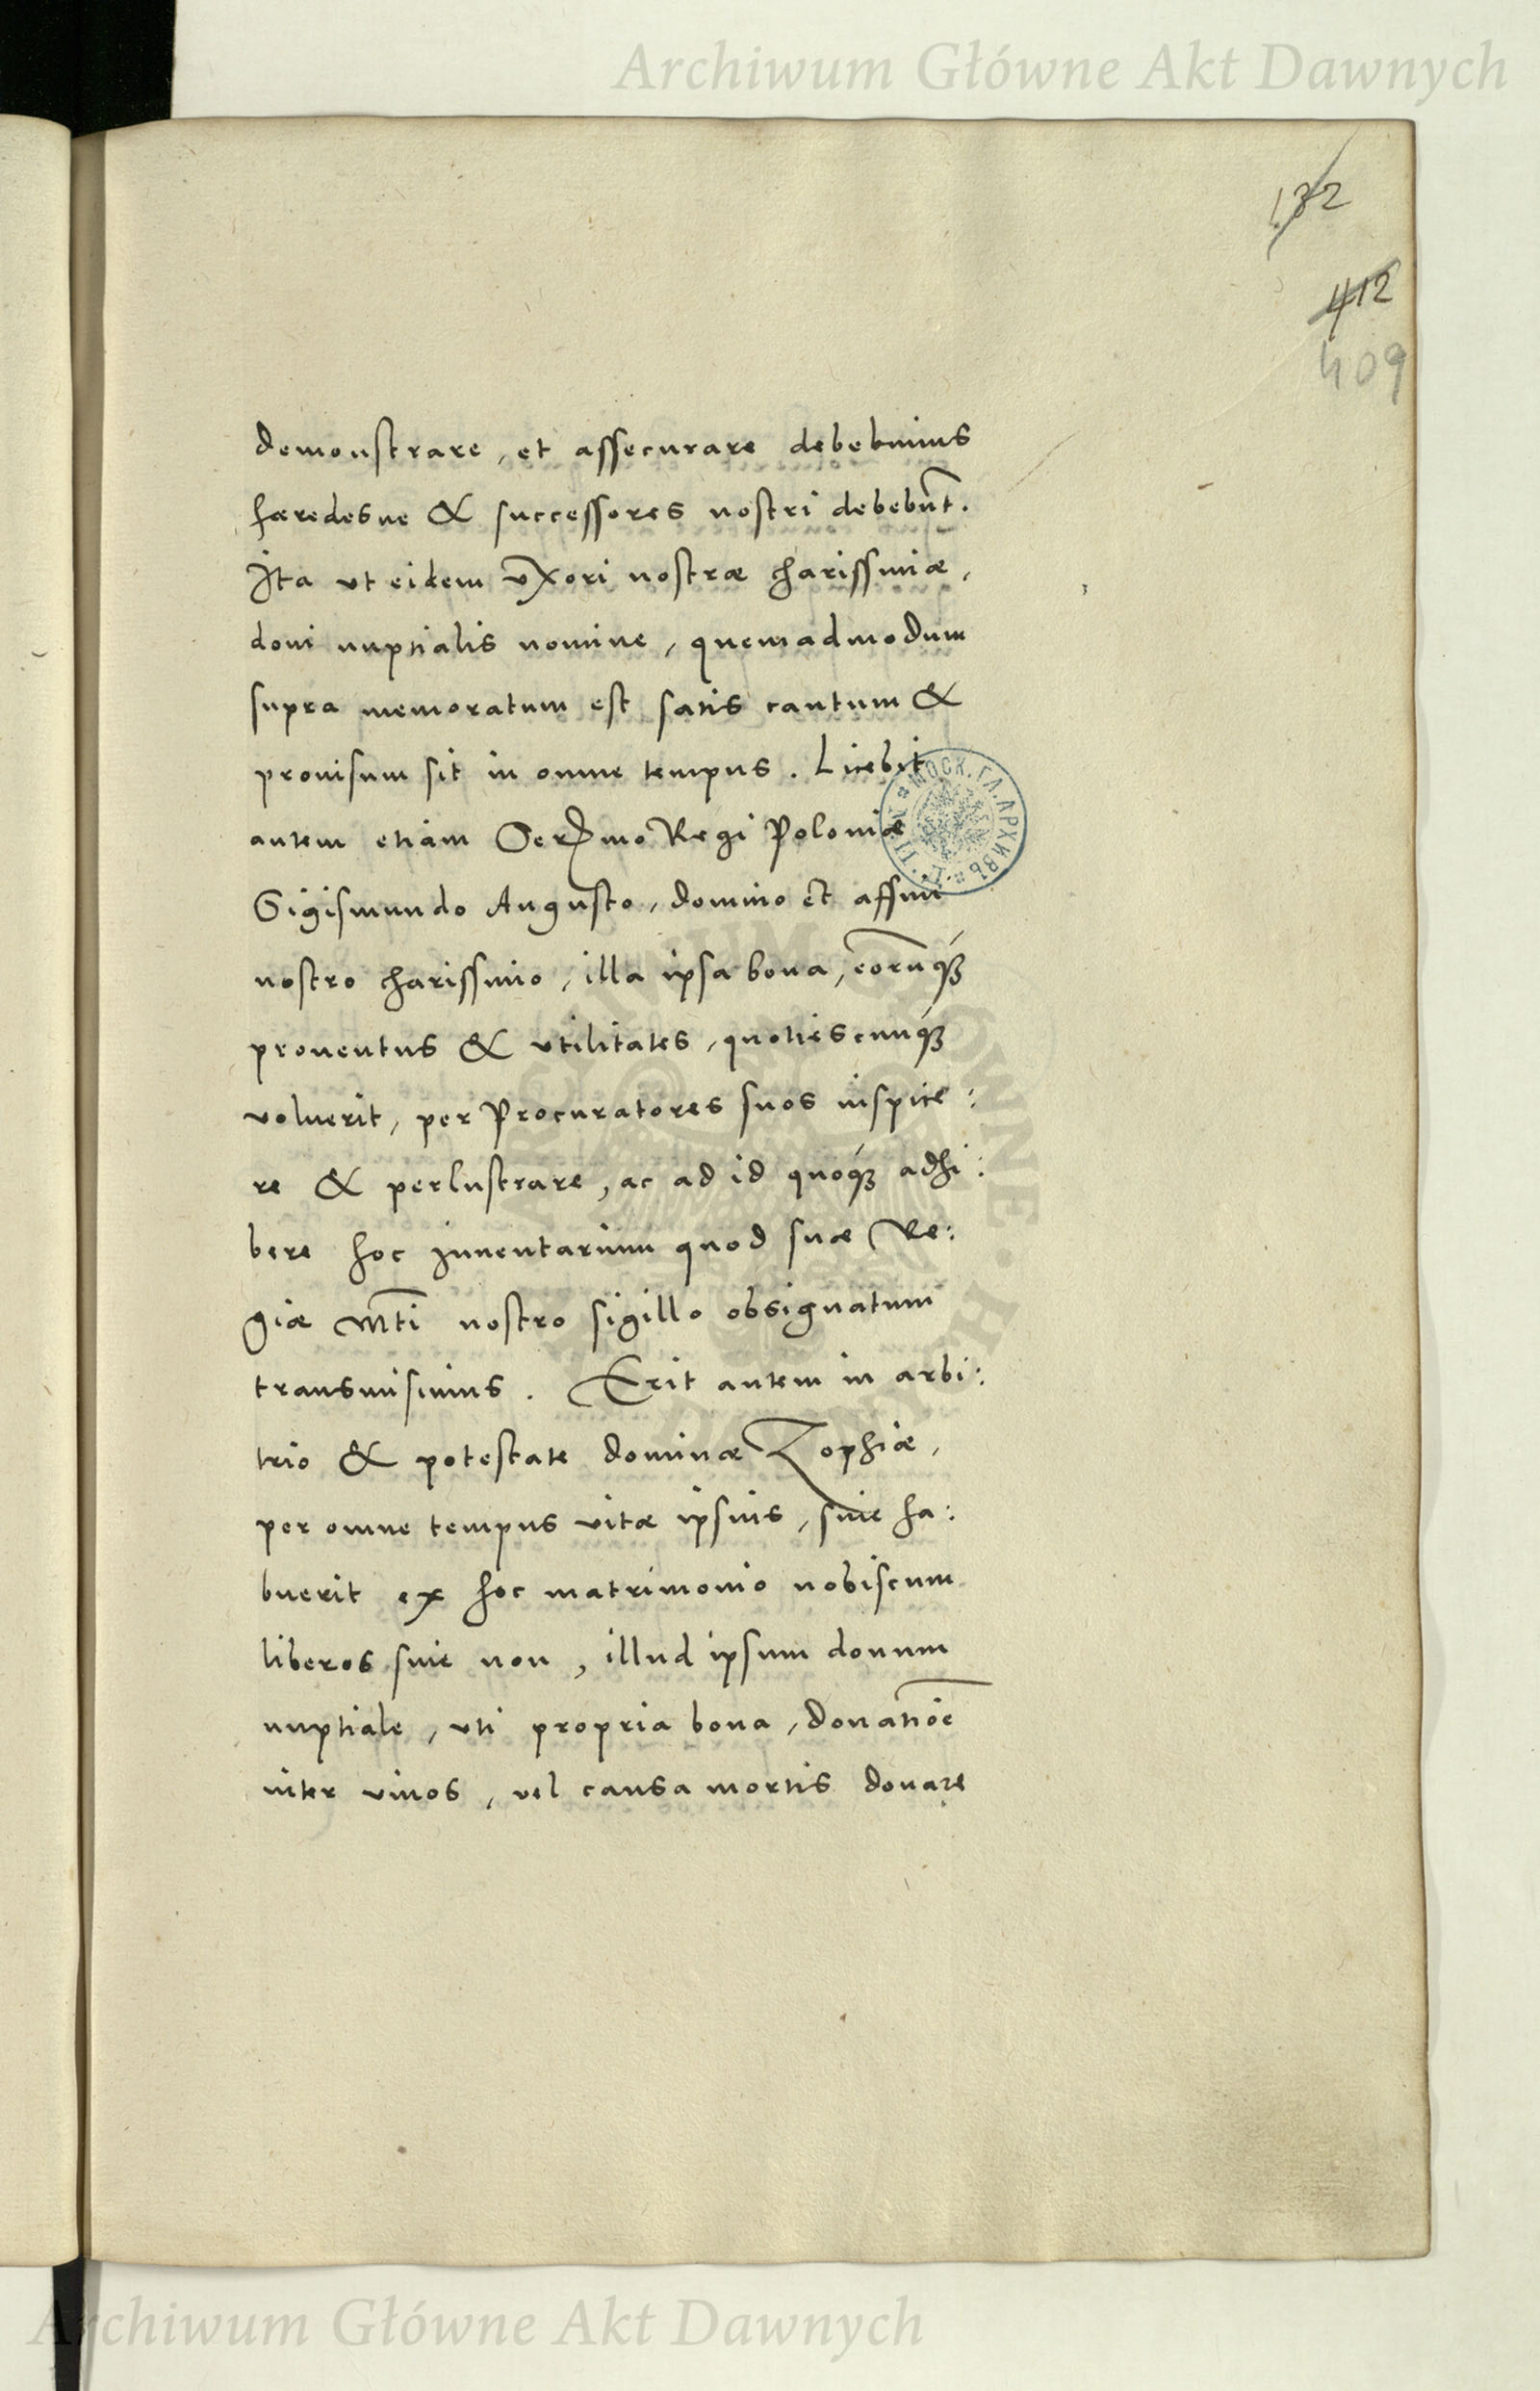 Archiwum Główne Akt Dawnych
132
412
409
demonstrare, et assecurare debebimus
hæredesue & successores nostri debebūt.
Ita vt eidem vxori nostræ charissimæ,
doni nuptialis nomine, quemadmodum
supra memoratum est satis cautum &
prouisum sit in omne tempus. Licebit
autem etiam Serᵐᵒ Regi Poloniæ
Sigismundo Augusto, domino et affini
nostro charissimo, illa ipsa bona, eorūq́₃
prouentus & vtilitates, quotiescunq́₃
voluerit, per Procuratores suos inspice:
re & perlustrare, ac ad id quoq́₃ adhi:
bere hoc inuentarium quod suæ Re:
giæ Mti nostro sigillo obsignatum
transmisimus. Erit autem in arbi:
trio & potestate dominæ Zophiæ,
per omne tempus vitæ ipsius, siue ha:
buerit ex hoc matrimonio nobiscum
liberos siue non, illud ipsum donum
nuptiale, vti propria bona, donatiōe
inter viuos, vel causa mortis donare
МОСК. ГЛ. АРХИВЪ
ARCHIWUM GŁÓWNE
Archiwum Główne Akt Dawnych